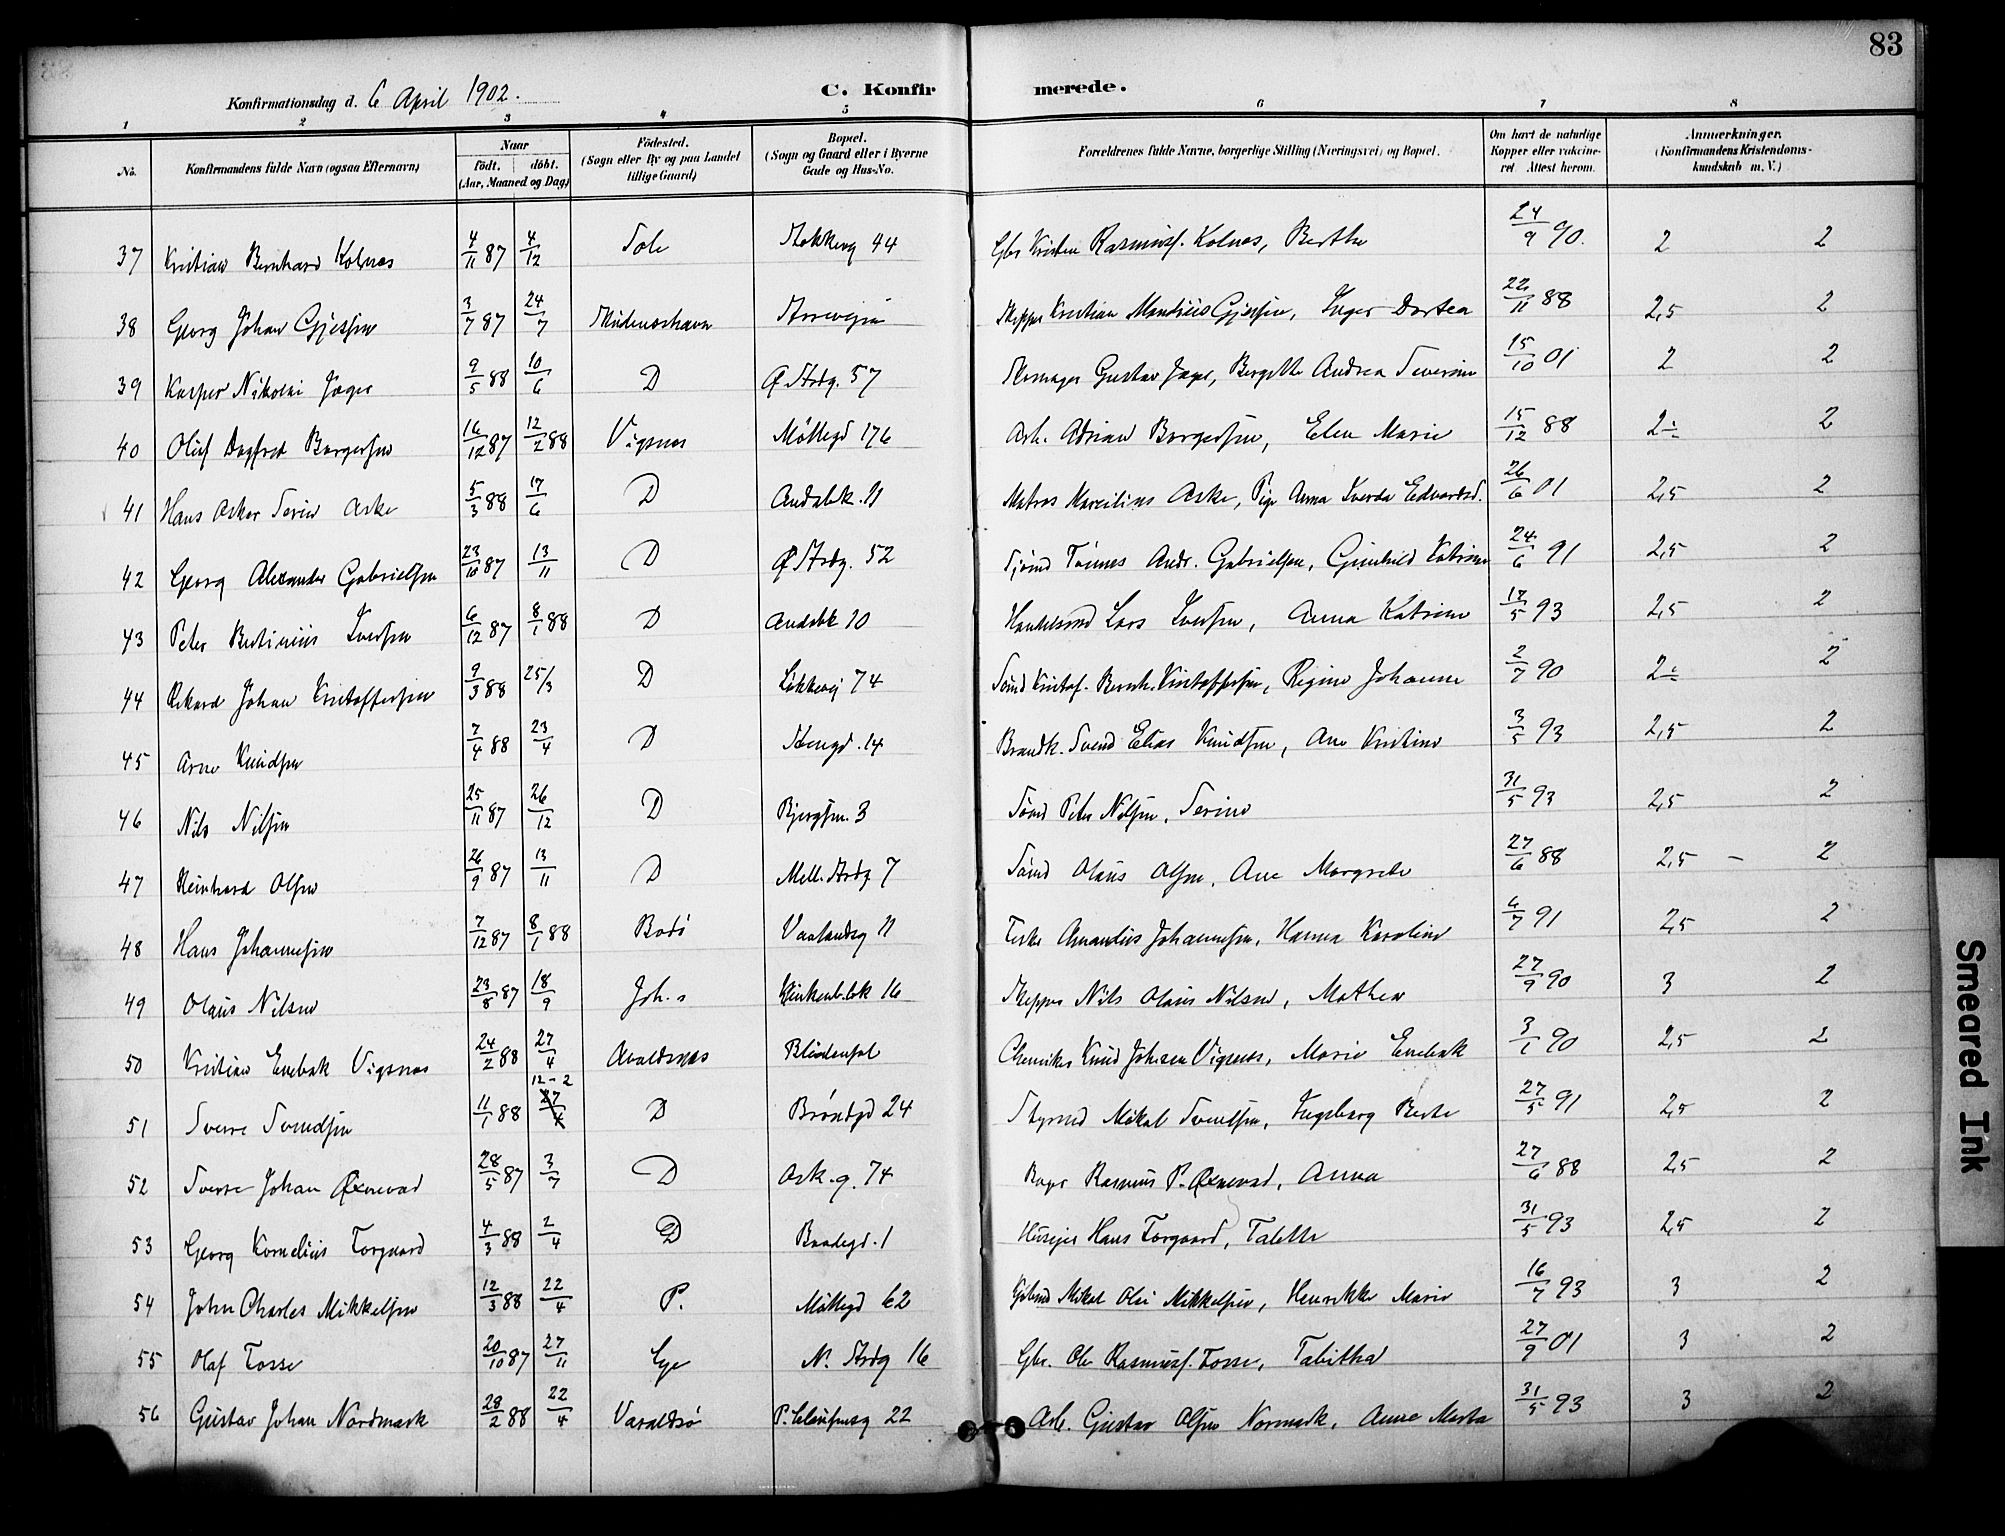 83
Konfirmationsdag d. 6 April 1902.
C. Konfirmerede.
1 2 3 4 5 6 7 8
No. Konfirmandens fulde Navn (ogsaa Efternavn) Naar født. døbt. (Aar, Maaned og Dag) Födested. (Sogn eller By og paa Landet tillige Gaard) Bopæl. (Sogn og Gaard eller i Byerne Gade og Hus-No. Forældrenes fulde Navne, borgerlige Stilling (Næringsvei) og Bopæl. Om havt de naturlige Kopper eller vakcineret Attest herom. Anmærkninger. (Konfirmandens Kristendomskundskab m. V.)
37 Kristian Bernhard Kolnes 4/11 87 4/12 Sole 44 Gbr Rasmuss. Kolnes, Berthe 24/9 90. 2 2
38 Georg Johan Gjessen 3/7 87 24/7 Skudeneshavn Skipper Kristian Gjessen, Inger Dortea 22/11 88 2,5 2
39 Kasper Nikolai Jæger 9/5 88 10/6 D Ø Strdg. 57 Gustav Jæger, Bergitte Andrea Severine 15/10 01 2 2
40 Oluf Dagfred Borgersen 16/12 87 12/2 88 Vigsnes Møllegd 176 Arb. Adrian Borgersen, Elen Marie 15/12 88 2÷ 2
41 Hans Asker Serin Aske 5/3 88 17/6 D Andabk. 11 Matros Marcilius Aske, Pige Anna Edvardsd. 26/6 01 2,5 2
42 Georg Alexander Gabrielsen 23/10 87 13/11 D Ø Strdg. 52 Sjømd Tønnes Andr. Gabrielsen, Gunhild Katrine 24/6 91 2,5 2
43 Peter Bertinius Iversen 6/12 87 8/1 88 D Andabk 10 Lars Iversen, Anna Katrine 17/5 93 2,5 2
44 Rikard Johan Kristoffersen 9/3 88 25/3 D Løkkevej 74 Sømd Kristof. Bernh. Kristoffersen, Regine Johanne 2/7 90 2÷ 2
45 Arne Knudsen 7/4 88 23/4 D Stengd. 14 Brandk. Svend Elias Knudsen, Ane Kristine 3/5 93 2,5 2
46 Nils Nilsen 25/11 87 26/12 D 3 Sømd Peter Nilsen, Serine 31/5 93 2,5 2
47 Reinhard Olsen 26/9 87 13/11 D Mell. Strdg 7 Sømd Olaus Olsen, Ane Margrete 27/6 88 2,5 – 2
48 Hans Johannesen 7/12 87 8/1 88 Bodø Vaalandsg 11 Amandus Johannesen, Hanna Karoline 6/7 91 2,5 2
49 Olaus Nilsen 23/8 87 18/9 Joh.s 16 Skipper Nils Olaus Nilsen, Mathea 27/9 90 3 2
50 Kristian Enebak Vigsnes 24/2 88 27/4 Avaldsnes Blindensol Chemiker Knud Johsen Vigsnes, Marie Enebak 3/1 90 2,5 2
51 Sverre Svendsen 11/1 88 12-2 27/4 D Brøndgd 24 Styrmd Mikal Svendsen, Ingeborg Berte 27/5 91 2,5 2
52 Sverre Johan Øxnevad 28/5 87 3/7 D Ask.g. 74 Bager Rasmus P. Øxnevad, Anna 27/6 88 2,5 2
53 Georg Kornelius Torgaard 4/3 88 2/4 D 1 Husejer Hans Torgaard, Talette 31/5 93 2,5 2
54 John Charles Mikkelsen 12/3 88 22/4 P. Møllegd 62 Mikal Olai Mikkelsen, Henrikke Marie 16/7 93 3 2
55 Olaf Tosse 20/10 87 27/11 N. Strdg 16 Gbr. Ole Rasmuss. Tosse, Tabitha 27/9 01 3 2
56 Gustav Johan Nordmark 28/2 88 22/4 Varaldsø P. Clausensg 22 Arb. Gustav Olsen Normark, Anne Marta 31/5 93 3 2
Smeared Ink